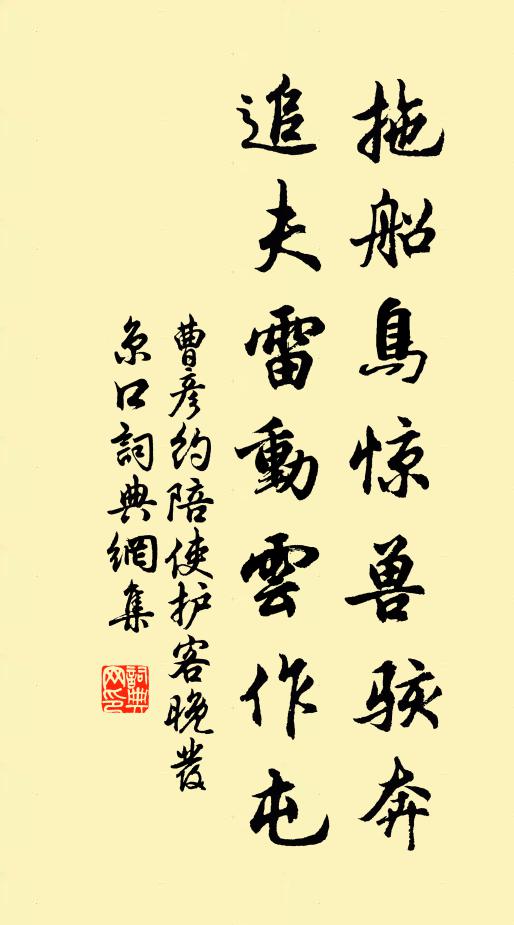 拖船鳥惊兽骇奔
追夫雷動雲作屯
曹彦约陪使护客晚發
京口詞典網集
詞典
网印